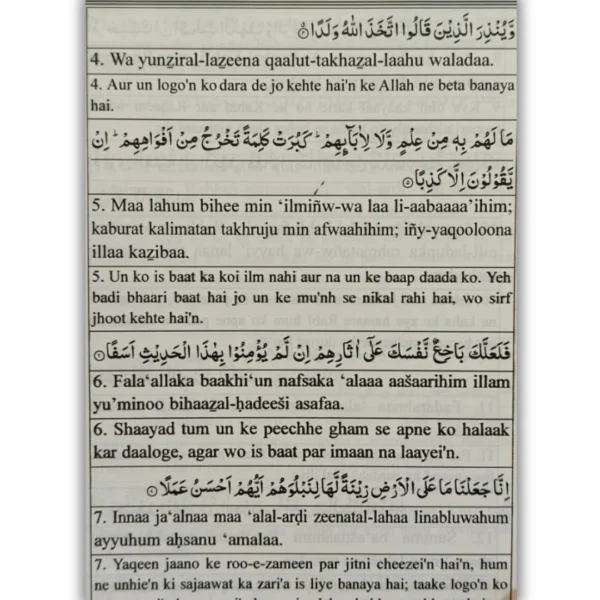 وَّيُنْذِرَ الَّذِيْنَ قَالُوا اتَّخَذَ اللّٰهُ وَلَدًا
4. Wa yunẕiral-laẕeena qaalut-takhaẕal-laahu waladaa.
4. Aur un logo'n ko dara de jo kehte hai'n ke Allah ne beta banaya
hai.
مَا لَهُمْ بِهٖ مِنْ عِلْمٍ وَّلَا لِاٰبَآئِهِمْ ؕ كَبُرَتْ كَلِمَةً تَخْرُجُ مِنْ اَفْوَاهِهِمْ ؕ اِنْ
يَّقُوْلُوْنَ اِلَّا كَذِبًا ۝
5. Maa lahum bihee min ‘ilmiñw-wa laa li-aabaaaa’ihim;
kaburat kalimatan takhruju min afwaahihim; iñy-yaqooloona
illaa kaẕibaa.
5. Un ko is baat ka koi ilm nahi aur na un ke baap daada ko. Yeh
badi bhaari baat hai jo un ke mu'nh se nikal rahi hai, wo sirf
jhoot kehte hai'n.
فَلَعَلَّكَ بَاخِعٌ نَّفْسَكَ عَلٰٓى اٰثَارِهِمْ اِنْ لَّمْ يُؤْمِنُوْا بِهٰذَا الْحَدِيْثِ اَسَفًا
6. Fala‘allaka baakhi‘un nafsaka ‘alaaa aašaarihim illam
yu’minoo bihaaẕal-ḥadeeši asafaa.
6. Shaayad tum un ke peechhe gham se apne ko halaak
kar daaloge, agar wo is baat par imaan na laayei'n.
اِنَّا جَعَلْنَا مَا عَلَى الْاَرْضِ زِيْنَةً لَّهَا لِنَبْلُوَهُمْ اَيُّهُمْ اَحْسَنُ عَمَلًا
7. Innaa ja‘alnaa maa ‘alal-arḍi zeenatal-lahaa linabluwahum
ayyuhum aḥsanu ‘amalaa.
7. Yaqeen jaano ke roo-e-zameen par jitni cheezei'n hai'n, hum
ne unhie'n ki sajaawat ka zari'a is liye banaya hai; taake logo'n ko